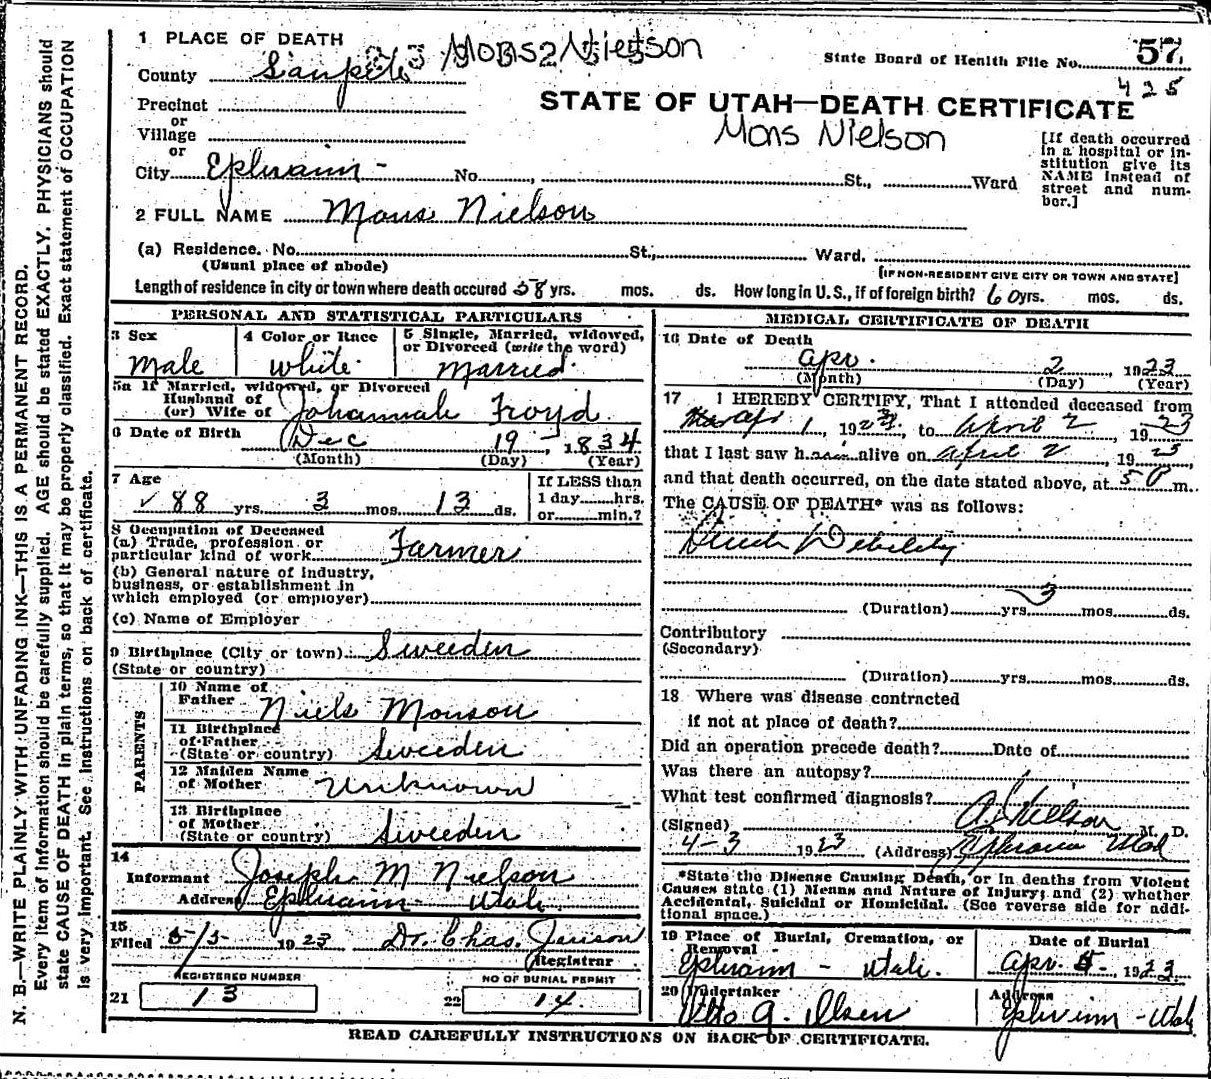 N. B.—WRITE PLAINLY WITH UNFADING INK—THIS IS A PERMANENT RECORD.
Every item of information should be carefully supplied. AGE should be stated EXACTLY. PHYSICIANS should
state CAUSE OF DEATH in plain terms, so that it may be properly classified. Exact statement of OCCUPATION
is very important. See instructions on back of certificate.
1 PLACE OF DEATH
County Sanpete
Precinct
or
Village
or
City Ephraim - No. , St., Ward
State Board of Health File No. 57
425
STATE OF UTAH—DEATH CERTIFICATE
Mons Nielson
[If death occurred
in a hospital or in-
stitution give its
NAME instead of
street and num-
ber.]
2 FULL NAME Mons Nielson
(a) Residence. No. St., Ward.
(Usual place of abode)
[IF NON-RESIDENT GIVE CITY OR TOWN AND STATE]
Length of residence in city or town where death occured 58 yrs. mos. ds. How long in U. S., if of foreign birth? 60 yrs. mos. ds.
PERSONAL AND STATISTICAL PARTICULARS
3 Sex
Male
4 Color or Race
white
5 Single, Married, widowed,
or Divorced (write the word)
Married
5a If Married, widowed, or Divorced
Husband of
(or) Wife of Johannah Froyd
6 Date of Birth Dec 19 - 1834
(Month) (Day) (Year)
7 Age
88 yrs. 3 mos. 13 ds.
If LESS than
1 day hrs.
or min.?
8 Occupation of Deceased
(a) Trade, profession or
particular kind of work Farmer
(b) General nature of industry,
business, or establishment in
which employed (or employer)
(c) Name of Employer
9 Birthplace (City or town) Sweeden
(State or country)
PARENTS
10 Name of
Father Niels Monson
11 Birthplace
of Father
(State or country) Sweeden
12 Maiden Name
of Mother Unknown
13 Birthplace
of Mother
(State or country) Sweeden
14
Informant Joseph M Nielson
Address Ephraim - Utah.
15
Filed 5/5- 1923 Dr. Chas. Jenson
Registrar
REGISTERED NUMBER
21 13
NO OF BURIAL PERMIT
22 14
MEDICAL CERTIFICATE OF DEATH
16 Date of Death
Apr. 2, 1923
(Month) (Day) (Year)
17 I HEREBY CERTIFY, That I attended deceased from
Apr 1, 1923, to April 2, 1923
that I last saw him alive on April 2, 1923,
and that death occurred, on the date stated above, at 5 P m.
The CAUSE OF DEATH* was as follows:
Debility
(Duration) yrs. 3 mos. ds.
Contributory
(Secondary)
(Duration) yrs. mos. ds.
18 Where was disease contracted
if not at place of death?
Did an operation precede death? Date of
Was there an autopsy?
What test confirmed diagnosis?
(Signed) Nielson M. D.
4-3 1923 (Address) Ephraim Utah
*State the Disease Causing Death, or in deaths from Violent
Causes state (1) Means and Nature of Injury; and (2) whether
Accidental, Suicidal or Homicidal. (See reverse side for addi-
tional space.)
19 Place of Burial, Cremation, or
Removal
Ephraim - Utah.
Date of Burial
Apr. 5-, 1923
20 Undertaker
Otto A. Olsen
Address
Ephraim - Utah
READ CAREFULLY INSTRUCTIONS ON BACK OF CERTIFICATE.